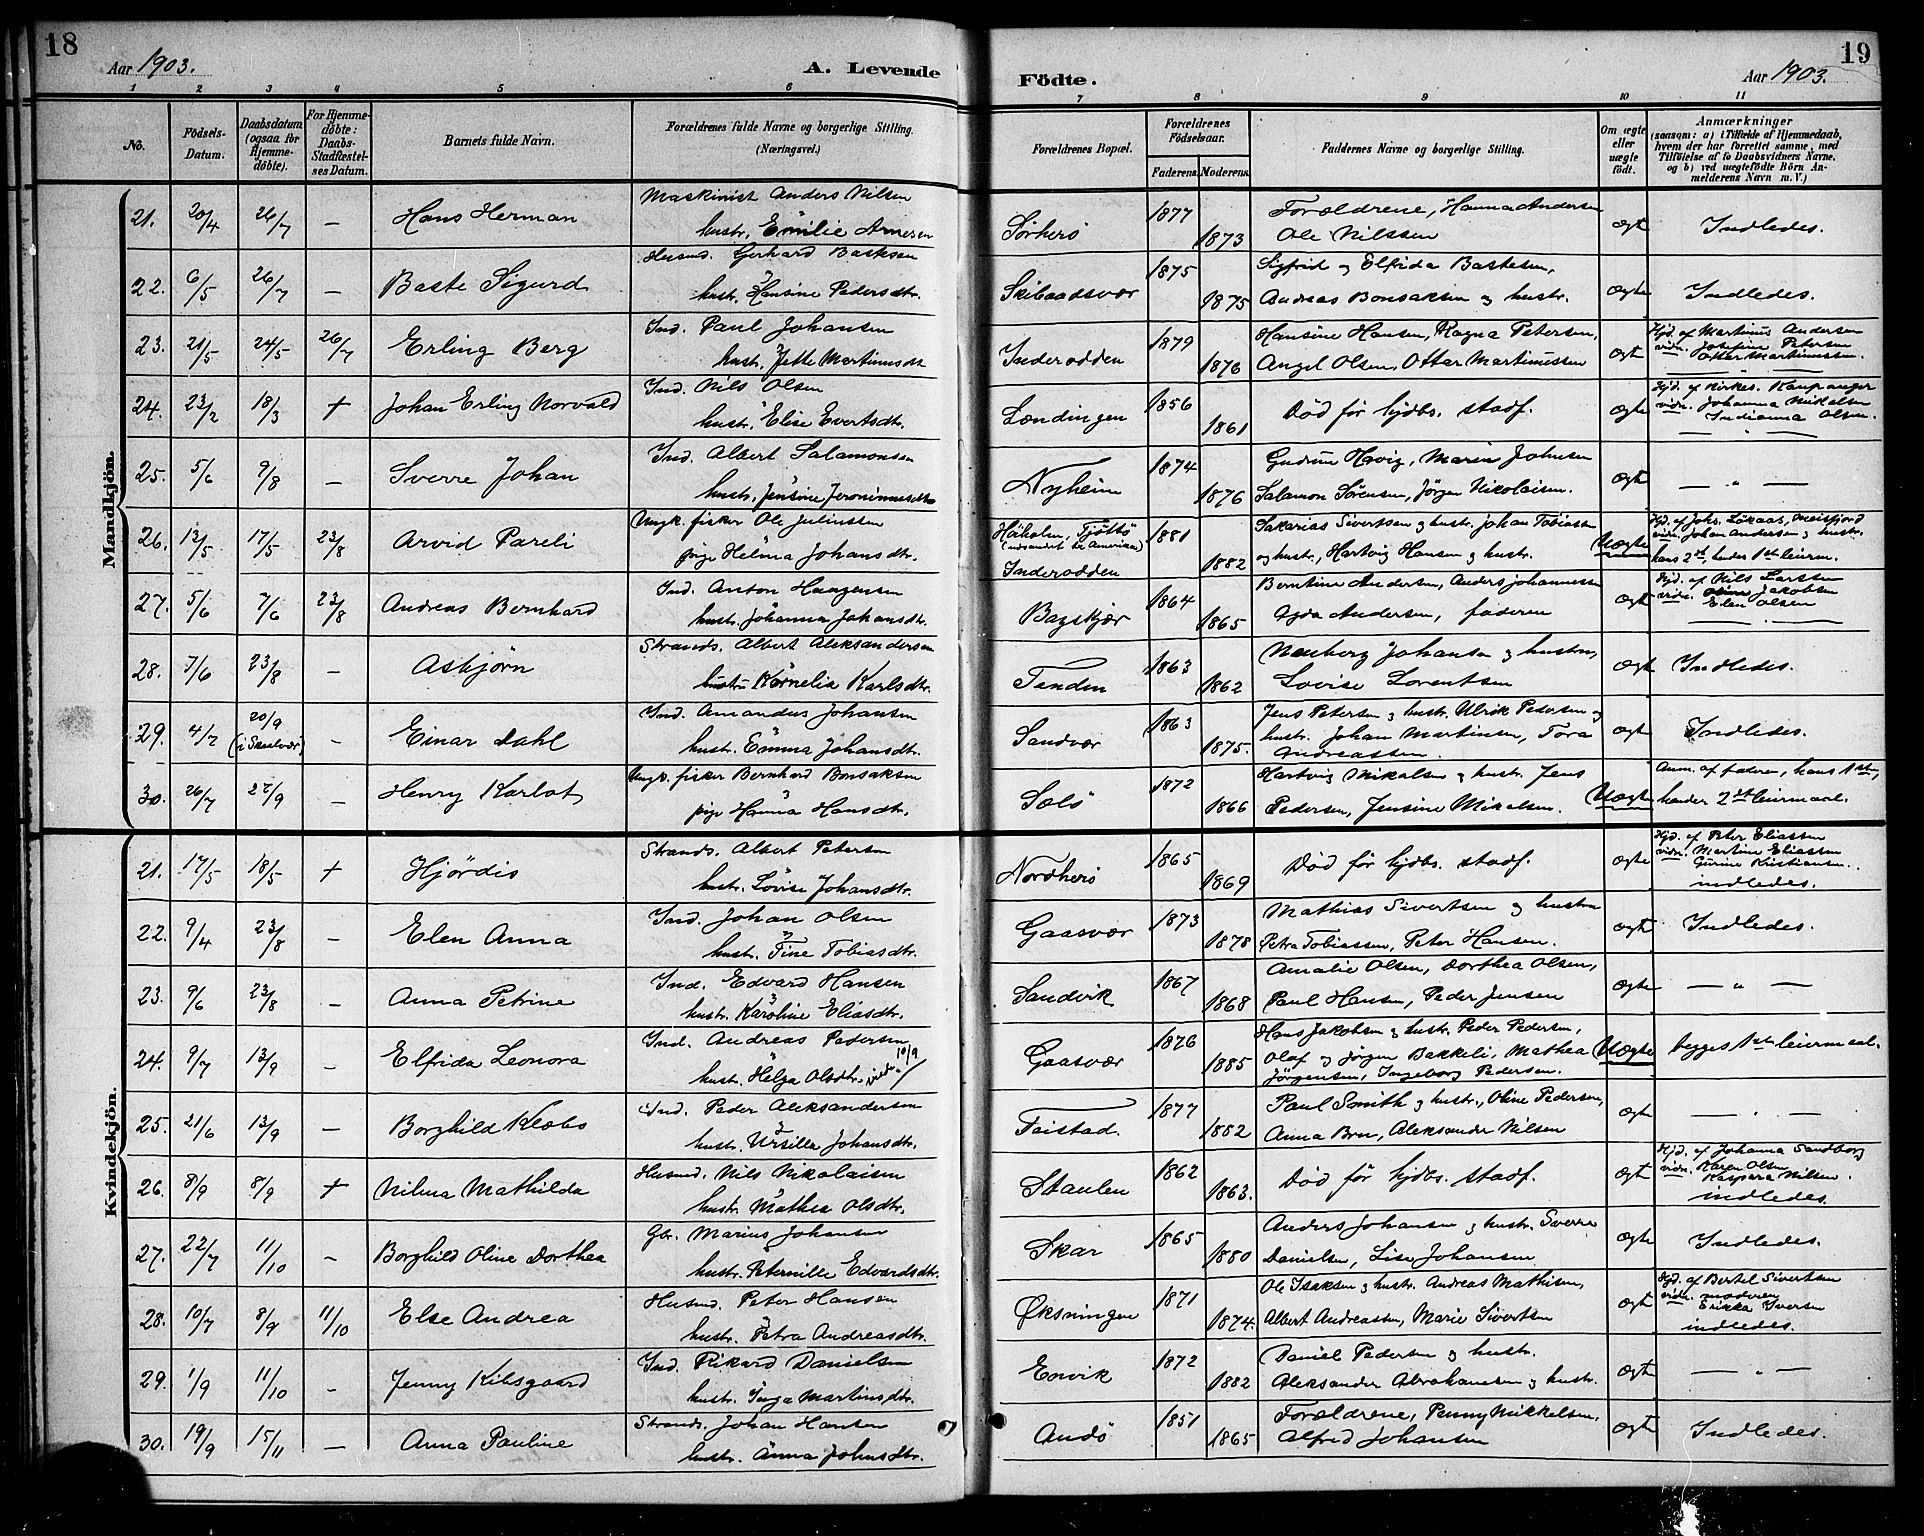 18
Aar 1903.
A. Levende
1 2 3 4 5 6
No.
Födsels-Datum.
Daabsdatum (ogsaa for Hjemmedöbte).
For Hjemmedöbte: Daabs-Stadfæstelses Datum.
Barnets fulde Navn.
Forældrenes fulde Navne og borgerlige Stilling.
(Næringsvei.)
Mandkjön.
21. 20/4 26/7 — Hans Herman
Maskinist Anders Nilsen
hustr. Emilie Arnesen
22. 6/5 26/7 — Baste Sigurd
Husmd. Gerhard Bastesen
hustr. Hansine Pedersdtr.
23. 21/5 24/5 26/7 Erling Berg
Ind. Paul Johansen
hustr. Jette Martinusdt
24. 23/2 18/3 + Johan Erling Norvald
Ind. Nils Olsen
hustr. Elise Evertsdtr.
25. 5/6 9/8 — Sverre Johan
Ind. Albert Salamonsen
hustr. Jensine Jeronimusdtr
26. 13/5 17/5 23/8 Arvid Pareli
Ungk. fisker Ole Juliussen
pige Helma Johansdtr.
27. 5/6 7/6 23/8 Andreas Bernhard
Ind. Anton Haagensen
hustr. Johanna Johansdtr.
28. 7/6 23/8 — Asbjörn
Strands. Albert Aleksandersen
hustru Kornelia Karlsdtr.
29. 4/7 20/9 (i Skaalvær) — Einar Dahl
Ind. Amandus Johansen
hustr. Emma Johansdtr.
30. 26/7 27/9 — Henry Karlot
Ungk. fisker Bernhard Bonsaksen
pige Hanna Hansdtr.
Kvindekjön.
21. 17/5 18/5 + Hjördis
Strands. Albert Petersen
hustr. Lovise Johansdtr.
22. 9/4 23/8 — Elen Anna
Ind. Johan Olsen
hustr. Tine Tobiasdtr.
23. 9/6 23/8 — Anna Petrine
Ind. Edvard Hansen
hustr. Karoline Eliasdtr.
24. 9/7 13/9 — Elfrida Leonora
Ind. Andreas Pedersen
hustr. Helga Olsdtr. viede 10/9
25. 21/6 13/9 — Borghild Klæbo
Ind. Peder Aleksandersen
hustr. Ursille Johansdtr.
26. 8/9 8/9 + Nilma Mathilda
Husmd. Nils Nikolaisen
hustr. Mathea Olsdtr.
27. 22/7 11/10 — Borghild Oline Dorthea
Gbr. Marius Johansen
hustr. Peternille Edvardsdtr.
28. 10/7 8/9 11/10 Else Andrea
Husmd. Peter Hansen
hustr. Petra Andreasdtr.
29. 1/9 11/10 — Jenny Kilsgaard
Ind. Rikard Danielsen
hustr. Inga Martinsdtr.
30. 19/9 15/11 — Anna Pauline
Strands. Johan Hansen
hustr. Anna Johnsdtr.
19
Födte.
Aar 1903.
7 8 9 10 11
Forældrenes Bopæl.
Forældrenes Födselsaar.
Faderens. Moderens.
Faddernes Navne og borgerlige Stilling.
Om ægte eller uægte födt.
Anmærkninger
(saasom: a) i Tilfælde af Hjemmedaab, hvem der har forrettet samme, med Tilföielse af to Daabsvidners Navne, og b) ved uægtefödte Börn Anmelderens Navn m. V.)
Sørherö 1877 1873
Forældrene, Hanna Andersen
Ole Nilssen
ægt Indledes.
Skibaadsvær 1875 1875
Sigfrid og Elfrida Bastesen,
Andreas Bonsaksen og hustr.
ægte Indledes.
Inderodden 1879 1876
Hansine Hansen, Ragna Petersen,
Angel Olsen, Ottar Martinussen
ægt
Hjd. af Martinus Andersen
vidn. Josefine Petersen
Ottar Martinussen.
Lændingen 1856 1861
Död før hjdbs. stadf.
ægte
Hjd. af Kirkes. Kaupanger
vidn. Johanna Mikalsen
Indianna Olsen.
Nyheim 1874 1876
Gudrun Høvig, Marie Johnsen
Salamon Sørensen, Jørgen Nikolaisen.
ægt — " —
Høiholm, Tjøttö
(udvandret til Amerika)
Inderodden 1881 1882
Sakarias Sivertsen og hustr. Johan Tobiassen
og hustr., Hartvig Hansen og hustr.
Uægte
Hjd. af Johs. Lökaas, Meisfjord
vidn. Johan Andersen og hustr.
hans 2det, hendes 1ste leierm.
Bagskjær 1864 1865
Berntine Andersen, Anders Johannessen
Agda Andersen, faderen
ægt
Hjd. af Nils Larssen
vidn. Jakobsen
Elen Olsen
Tenden 1863 1862
Nauberg Johansen og hustru,
Lovise Lorentsen
ægt Indledes.
Sandvær 1863 1875.
Jens Petersen og hustr. Ulrik Pedersen og
hustr. Johan Martinsen, Tora
Andreassen.
ægte Indledes.
Sælö 1872 1866
Hartvig Mikalsen og hustr. Jens
Pedersen, Jensine Mikalsen.
Uægte
Anm. af faderen, hans 1ste,
hendes 2det leiermaal.
Nordherö 1865 1869
Död før hjdbs. stadf.
ægte
Hjd. af Peter Eliassen
vidn. Martine Eliassen
Gurine Kristiansen.
indledes.
Gaasvær 1873 1878
Mathias Sivertsen og hustru
Petra Tobiassen, Peter Hansen.
ægt Indledes.
Sandvik 1867 1868
Amalie Olsen, Dorthea Olsen,
Paul Hansen, Peder Jensen
ægte — " —
Gaasvær 1876 1885
Hans Jakobsen og hustr. Peder Pedersen,
Olaf og Jørgen Bakkeli, Mathea
Jørgensen, Ingeborg Pedersen.
Uægte begges 1ste leiermaal.
Feistad. 1877 1882
Paul Smith og hustr., Oline Pedersen,
Anna Bru, Aleksander Nilsen
ægt — " —
Staulen 1862 1863.
Död før hjdbs. stadf.
ægt
Hjd. af Johanna Sandborg
vidn. Karen Olsen
Kaspara Nilsen.
indledes.
Skar 1865 1880
Anders Johansen og hustr. Sverre
Danielsen, Lise Johansen
ægte Indledes.
Øksningen 1871 1874.
Ole Isaksen og hustr. Andreas Mathisen,
Albert Andreassen, Marie Sivertsen
ægt
Hjd. af Bertel Sivertsen
vidn. moderen
Erikka Iversen
indledes.
Envik 1872 1882
Daniel Pedersen og hustr.
Aleksander Abrahamsen og hustr.
ægt — " —
Andö 1851 1865
Forældrene, Penny Mikkelsen,
Alfred Johansen
ægt Indledes.